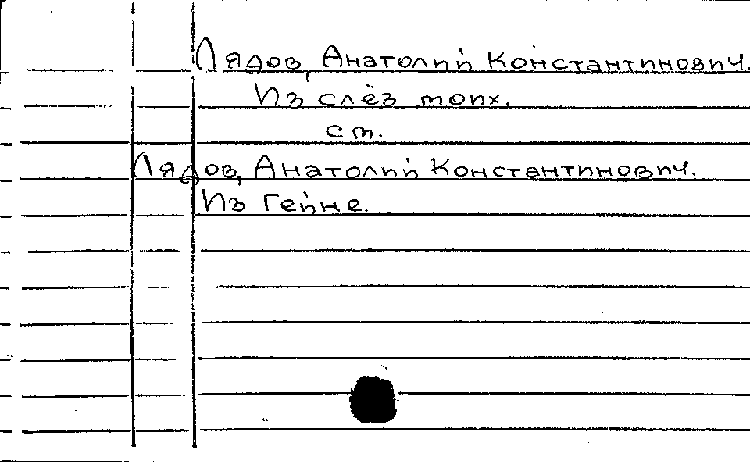 Лядов, Анатолий Константинович.
Из слёз моих.
см.
Лядов, Анатолий Константинович.
Из Гейне.